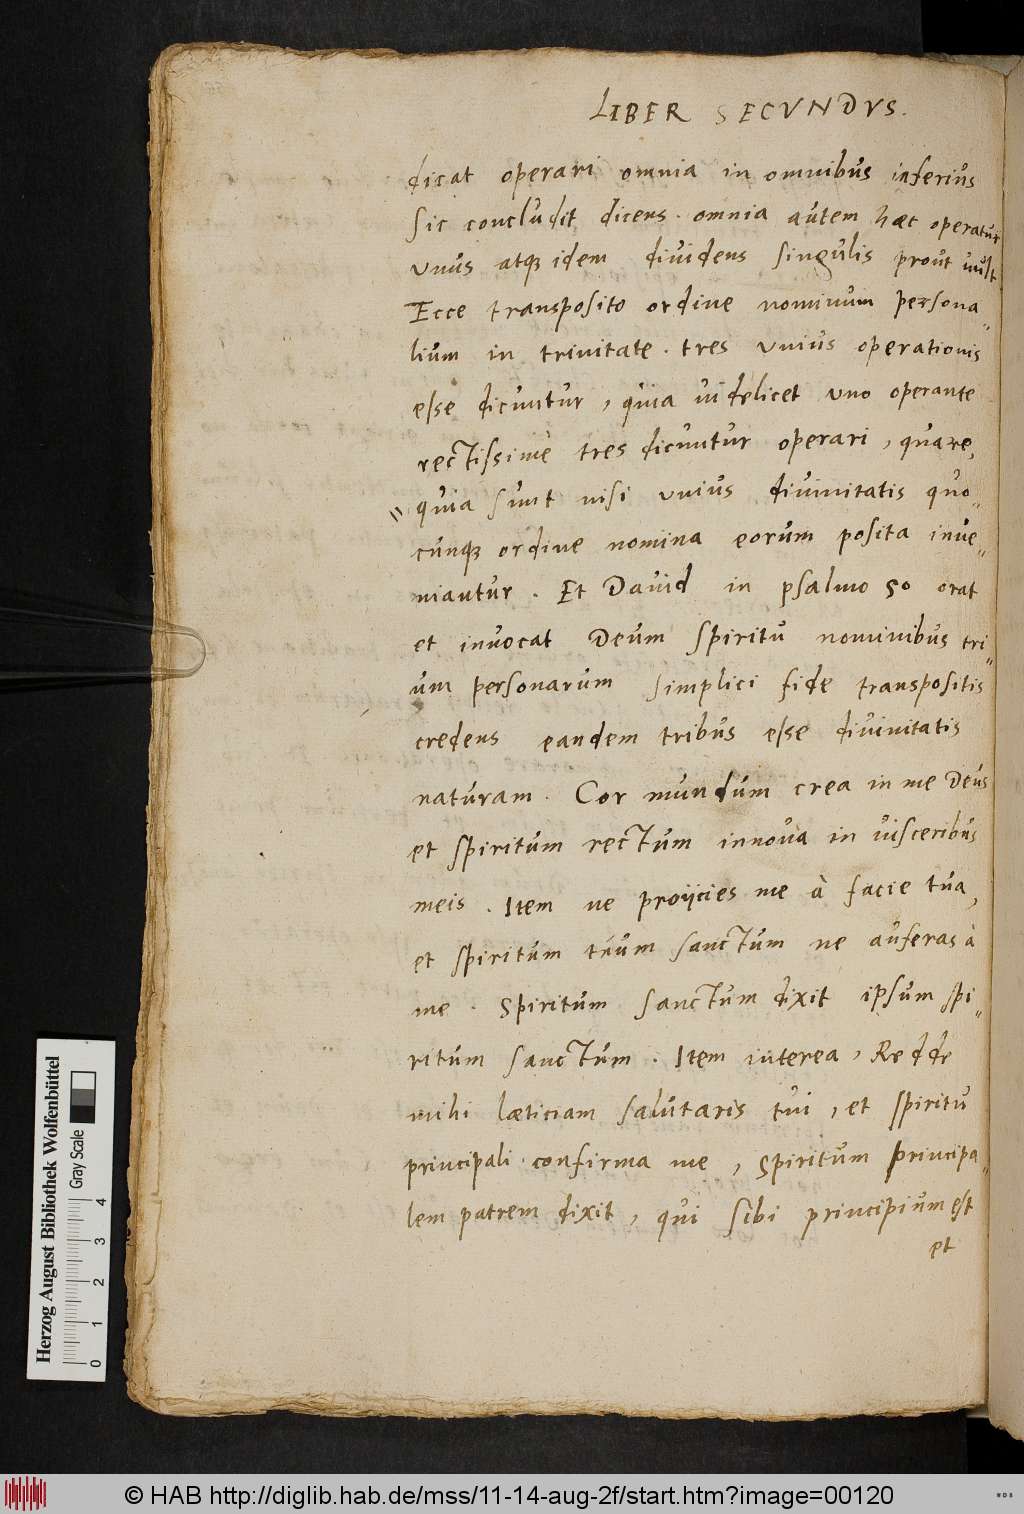 LIBER SECVNDVS.
dicat operari omnia in omnibus inferius
sic concludit dicens. omnia autem hæc operatur
vnus atq idem diuidens singulis prout uult
Ecce transposito ordine nominum persona„
lium in trinitate. tres vnius operationis
esse dicuntur, quia uidelicet uno operante
rectissime tres dicuntur operari, quare,
" quia sunt nisi vnius diuinitatis quo„
cunq ordine nomina eorum posita inue„
niantur. Et Dauid in psalmo 50 orat
et inuocat Deum spiritu nominibus tri„
um personarum simplici fide transpositis
credens eandem tribus esse diuinitatis
naturam. Cor mundum crea in me Deus
et spiritum rectum innoua in uisceribus
meis. Item ne proijcies me à facie tua,
et spiritum tuum sanctum ne auferas à
me. Spiritum sanctum dixit ipsum spi„
ritum sanctum. Item interea, Redde
mihi læticiam salutaris tui, et spiritu
principali confirma me, Spiritum principa„
lem patrem dixit, qui sibi principium est
et
Herzog August Bibliothek Wolfenbüttel
Gray Scale
0 1 2 3 4
© HAB http://diglib.hab.de/mss/11-14-aug-2f/start.htm?image=00120